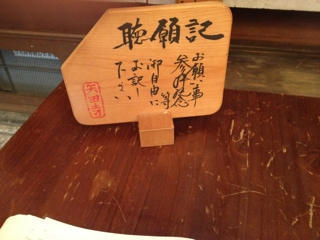 聴願記
お願い事
参拝記念
等
御自由に
お記し
下さい
矢田寺